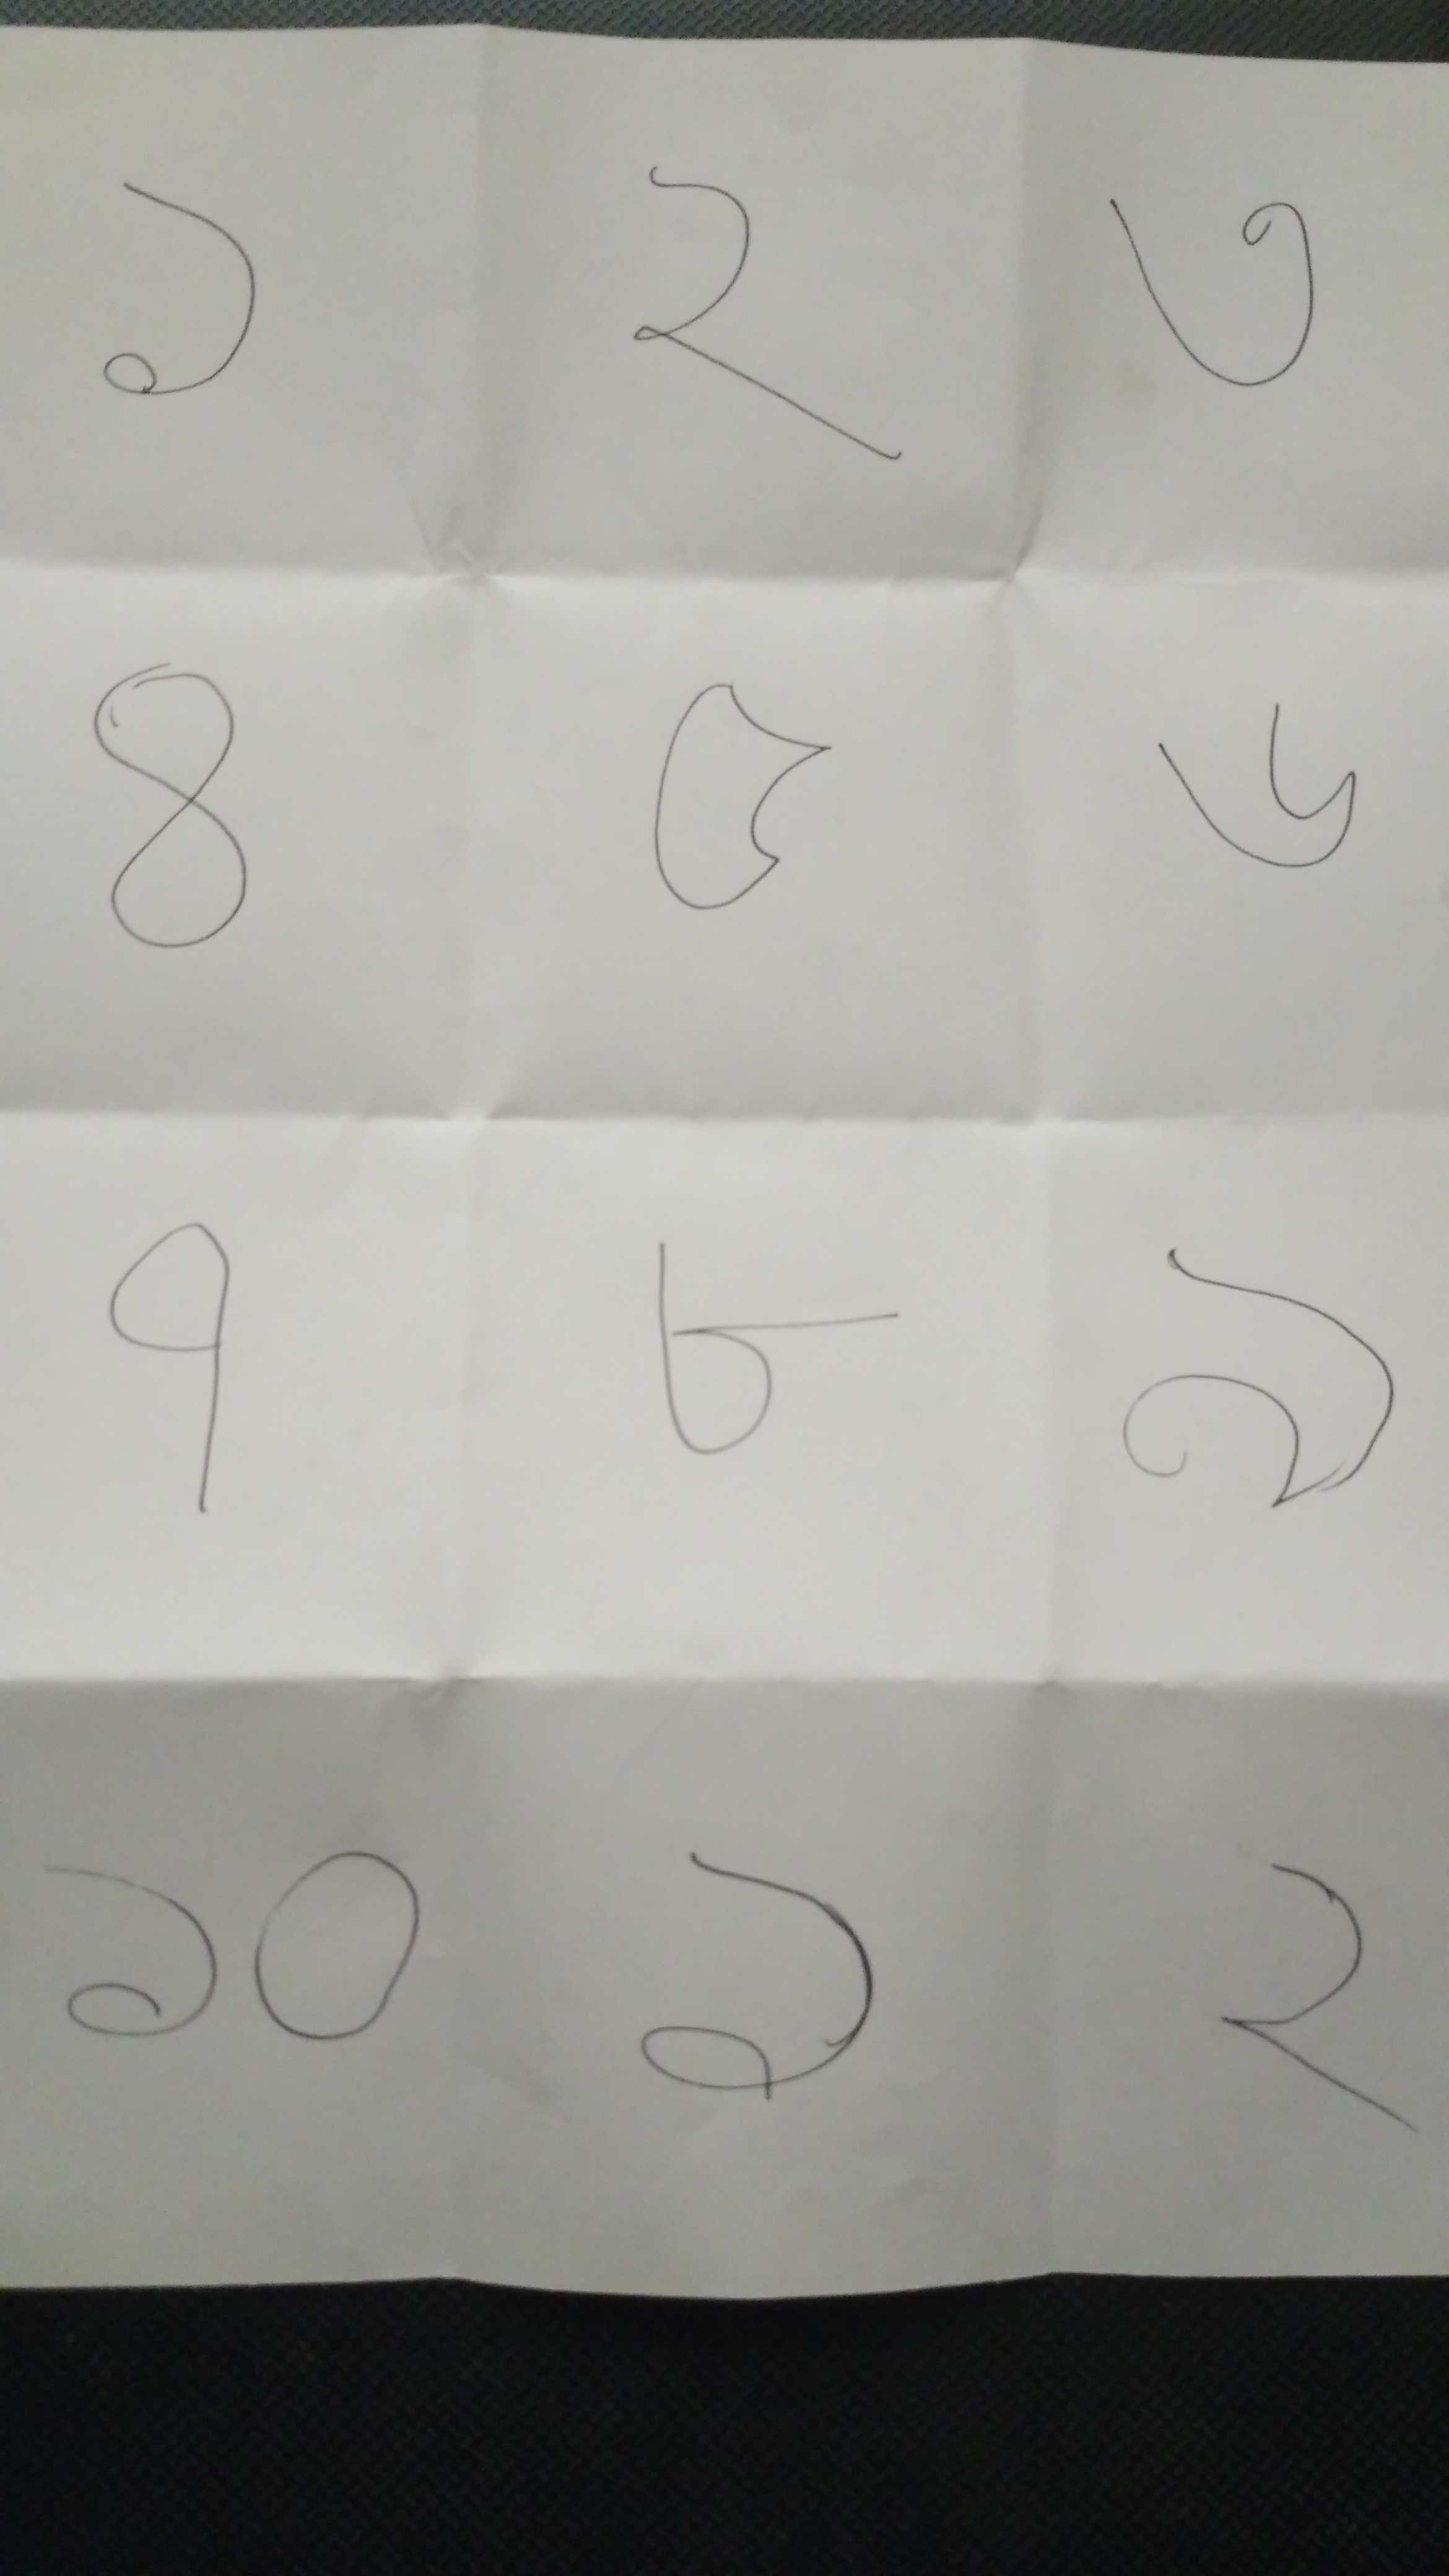 ১ ২ ৩
৪ ৫ ৬
৭ ৮ ৯
১০ ১ ২